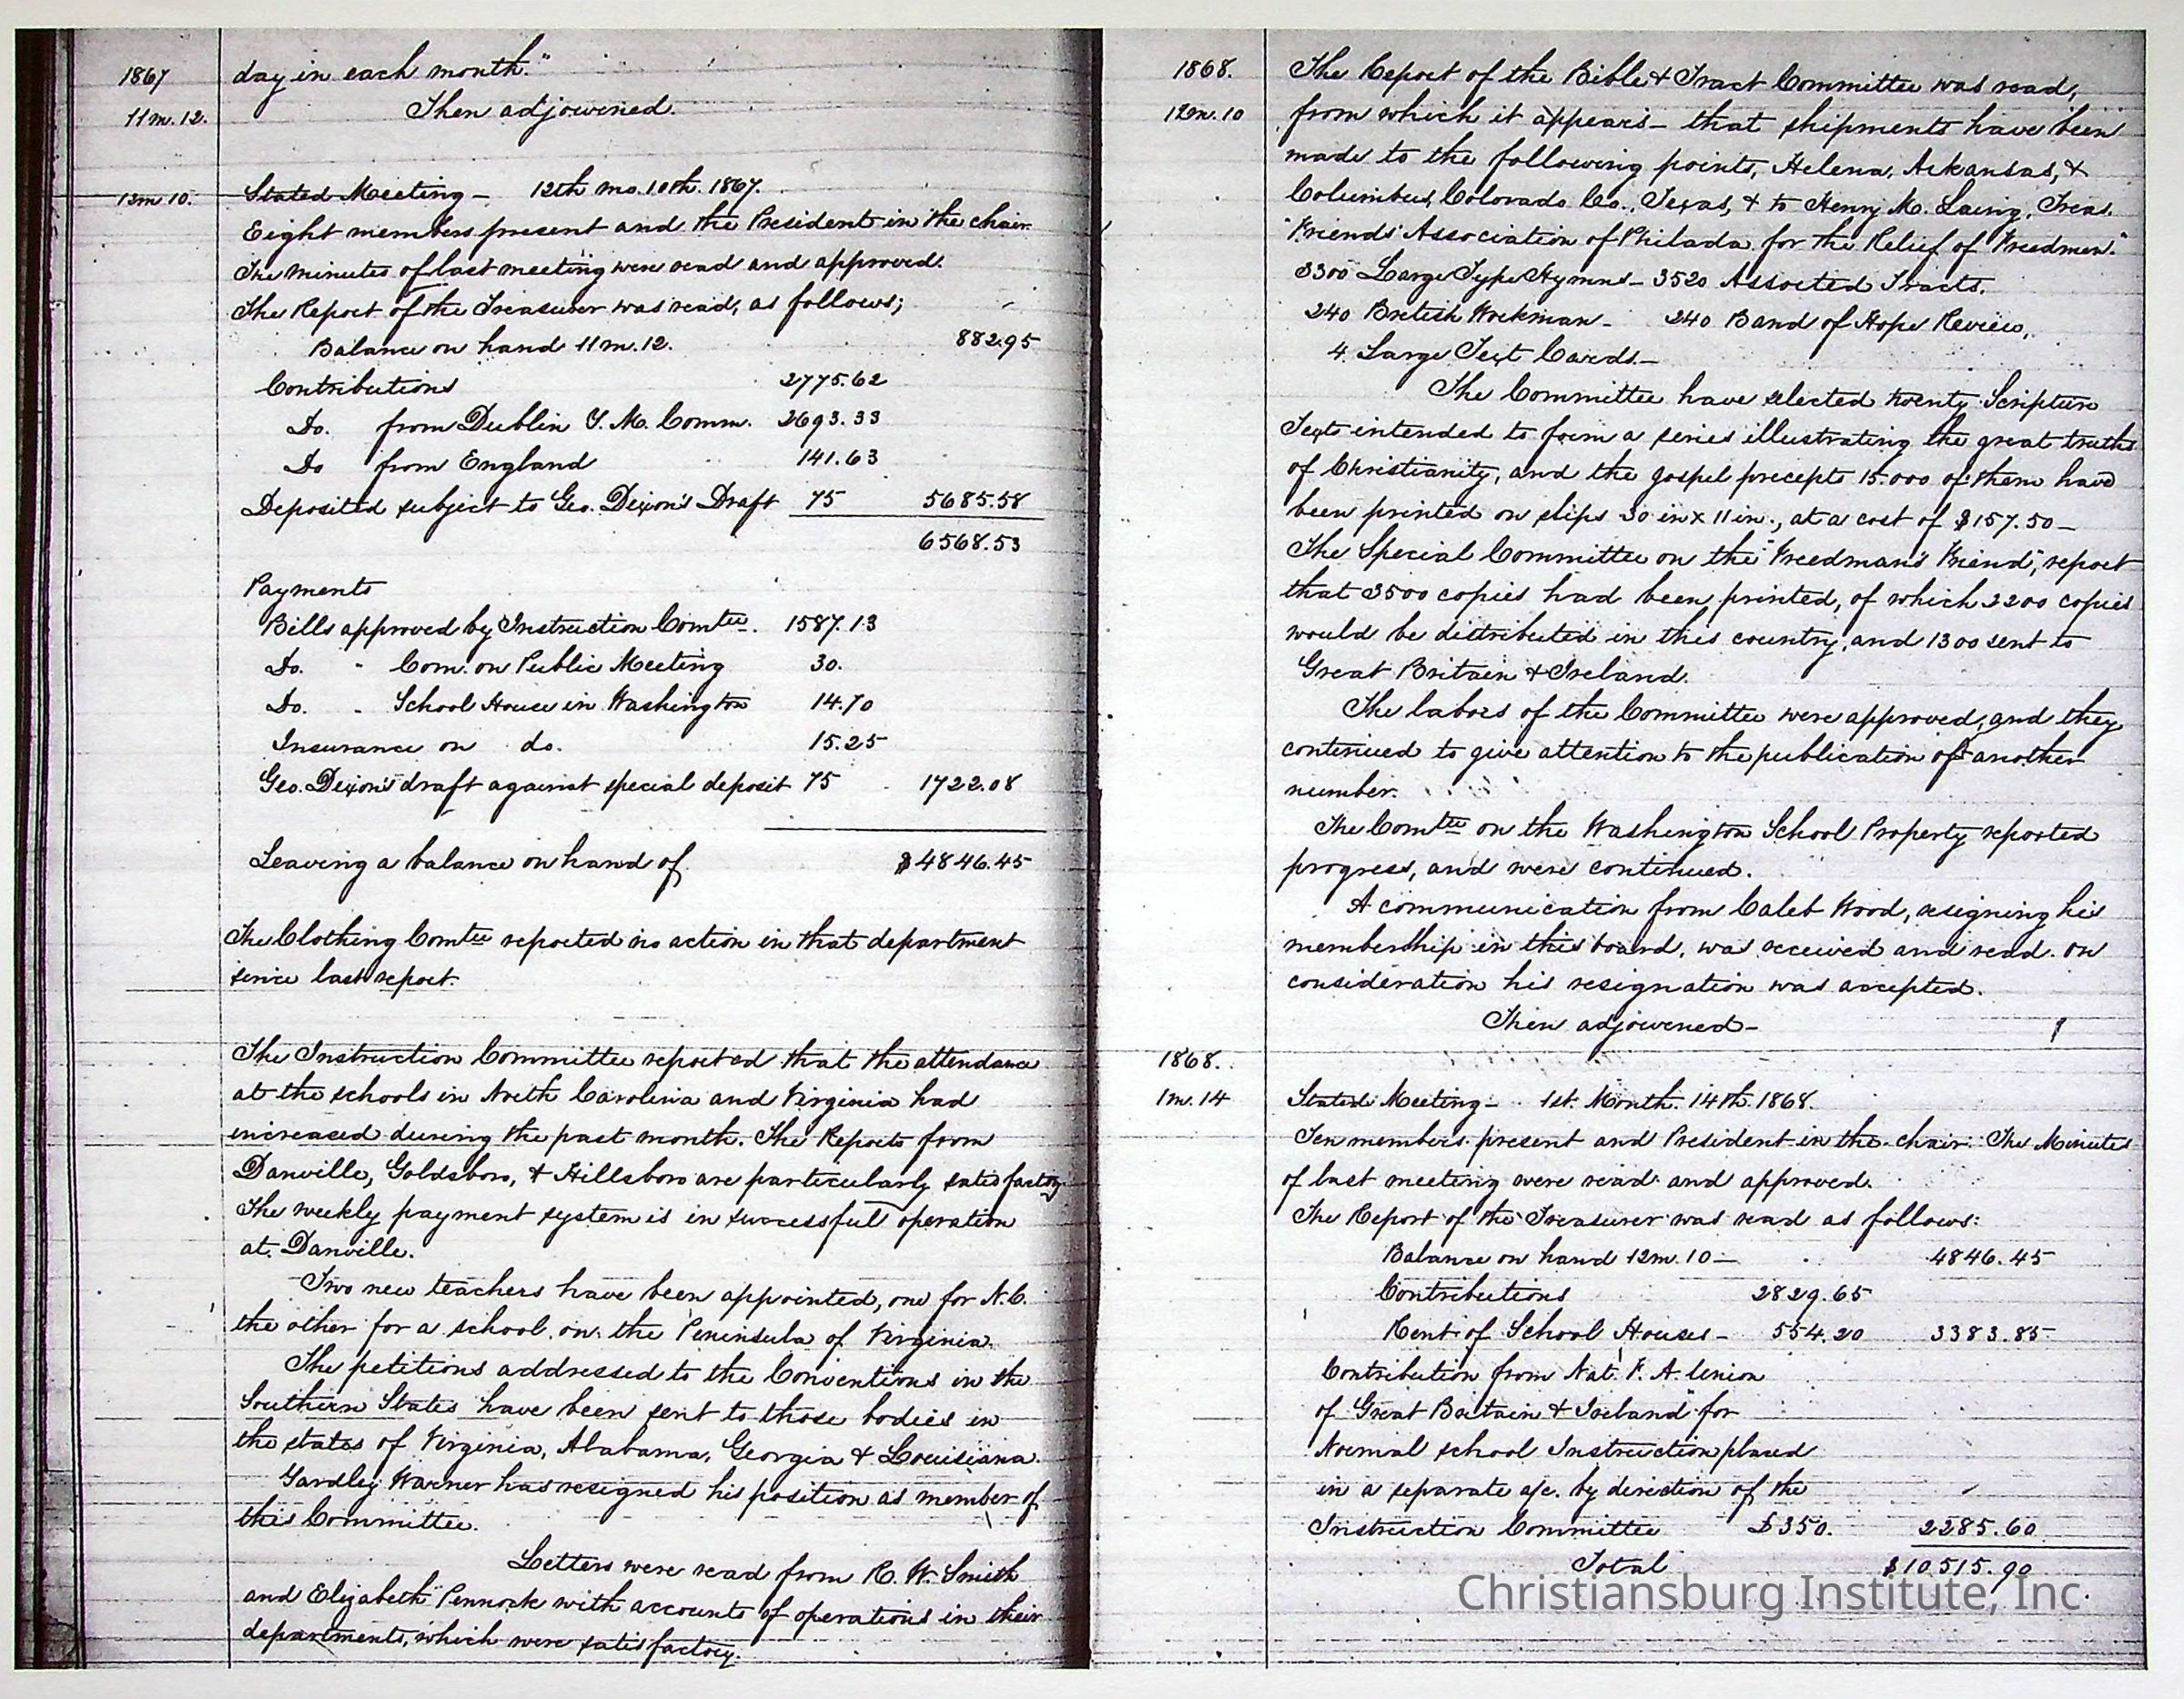 1867
day in each month."
11m.12.
Then adjourned.
12m 10.
Stated Meeting – 12th mo. 10th. 1867.
Eight members present and the President in the chair.
The minutes of last meeting were read and approved.
The Report of the Treasurer was read, as follows;
Balance on hand 11m.12. 882.95
Contributions 2775.62
Do. from Dublin Y. M. Comm. 2693.33
Do from England 141.63
Deposited subject to Geo. Dixon's Draft 75 5685.58
6568.53
Payments
Bills approved by Instruction Comtee. 1587.13
Do. " Com. on Public Meeting 30.
Do. " School House in Washington 14.70
Insurance on do. 15.25
Geo. Dixon's draft against special deposit 75 1722.08
Leaving a balance on hand of $4846.45
The Clothing Comtee reported no action in that department
since last report.
The Instruction Committee reported that the attendance
at the schools in North Carolina and Virginia had
increased during the past month. The Reports from
Danville, Goldsboro, & Hillsboro are particularly satisfactory
The weekly payment system is in successful operation
at Danville.
Two new teachers have been appointed, one for N.C.
the other for a school on the Peninsula of Virginia.
The petitions addressed to the Conventions in the
Southern States have been sent to those bodies in
the states of Virginia, Alabama, Georgia & Louisiana.
Yardley Warner has resigned his position as member of
this Committee.
Letters were read from R. W. Smith
and Elizabeth Pennock with accounts of operations in their
departments, which were satisfactory.
1868.
The Report of the Bible & Tract Committee was read,
12m.10
from which it appears – that shipments have been
made to the following points, Helena, Arkansas, &
Columbus, Colorado Co., Texas, & to Henry M. Laing, Treas.
"Friends' Association of Philada. for the Relief of Freedmen."
3300 Large Type Hymns – 3520 Assorted Tracts.
240 British Workman – 240 Band of Hope Review,
4 Large Text Cards. –
The Committee have selected twenty Scripture
Texts intended to form a series illustrating the great truths
of Christianity, and the gospel precepts 15.000 of them have
been printed on slips 30 in x 11 in., at a cost of $157.50 –
The Special Committee on the "Freedman's Friend", report
that 3500 copies had been printed, of which 2200 copies
would be distributed in this country, and 1300 sent to
Great Britain & Ireland.
The labors of the Committee were approved, and they
continued to give attention to the publication of another
number.
The Comtee on the Washington School Property reported
progress, and were continued.
A communication from Caleb Wood, resigning his
membership in this board, was received and read. On
consideration his resignation was accepted.
Then adjourned –
1868.
1m.14
Stated Meeting – 1st. Month. 14th. 1868.
Ten members present and President in the chair. The Minutes
of last meeting were read and approved.
The Report of the Treasurer was read as follows:
Balance on hand 12m.10 – 4846.45
Contributions 2829.65
Rent of School Houses – 554.20 3383.85
Contribution from Nat. F. A. Union
of Great Britain & Ireland for
Normal school Instruction placed
in a separate a/c. by direction of the
Instruction Committee £350. 2285.60
Total $10.515.90
Christiansburg Institute, Inc